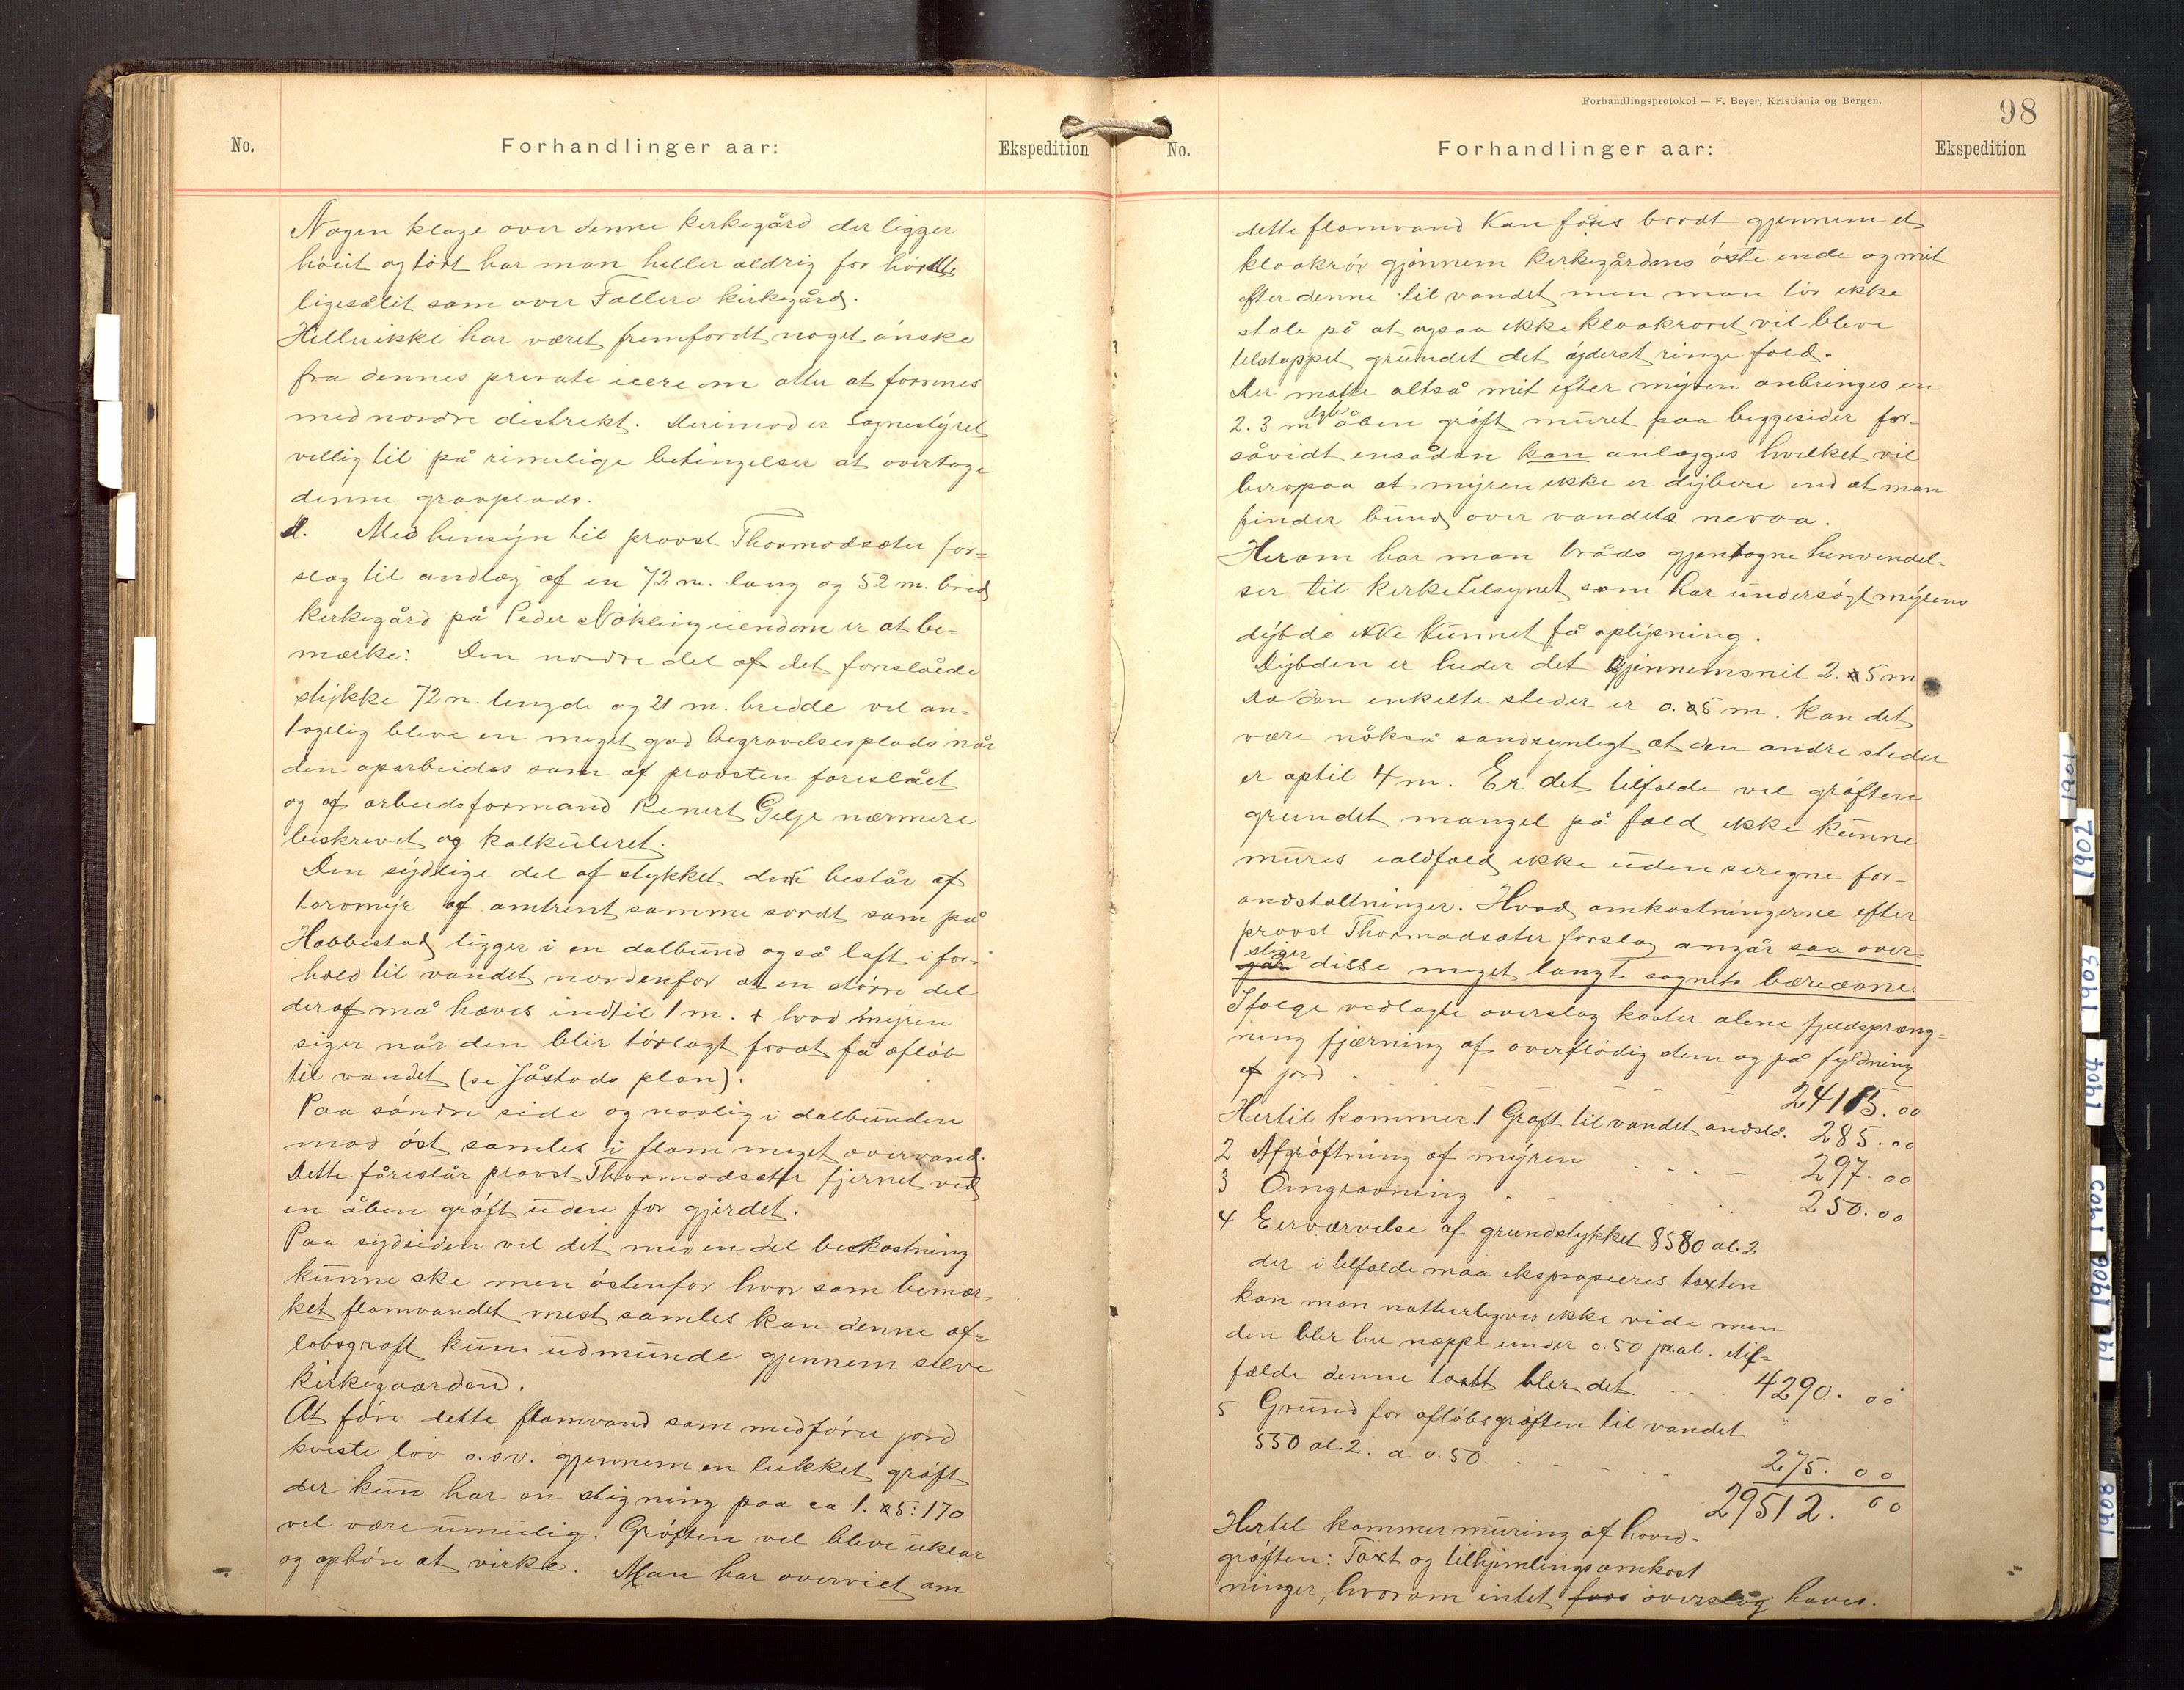 No.
Forhandlinger aar:
Ekspedition
Nogen klage over denne kirkegård der ligger
höieit og tört har man heller aldrig for hörtt
ligesålit som over Follerö kirkegård.
Hellerikke har været fremfordt noget önske
fra dennes private ieere om atter at forenes
med nordre distrekt. Derimod er Sognestyret
vellig til på rimelige betingelser at overtage
denne gravplads.
d. Med hensyn til provst Thormodsæter for-
slag til andlæg af en 72 m. lang og 52 m. bred
kirkegård på Peder Nökling eiendom er at be-
mærke: Den nordre del af det foreslåede
stykke 72 m. lengde og 21 m. bredde vel an-
tagelig bleve en meget god begravelsesplads når
den oparbeides som af provsten foreslået
og af arbeidsformand Renert Gelje nærmere
beskrevet og kalkuleret.
Den sydlige del af stykket der består af
torvmyr af omtrent samme sordt som på
Hobbestad ligger i en dalbund også laft i for-
hold til vandet nordenfor at en större del
deraf må hæves indtil 1 m. + hvad myren
siger når den blir törlagt forat få aflöb
til vandet (se Jåstads plan).
Paa söndre side og navlig i dalbunden
mod öst samles i flom meget overvand.
Dette föreslår provst Thormodsæter fjernet ved
en åben gröft uden for gjerdet.
Paa sydsiden vel det med en del bekostning
kunne ske men östenfor hvor som bemær-
ket flomvandet mest samles kan denne af-
löbsgröft kun udmunde gjennem selve
kirkegaarden.
At före dette flomvand som medförer jord
kviste löv o.s.v. gjennem en lukket gröft
der kun har en stigning paa ca 1.5:170
vel være umulig. Gröften vel bleve uklar
og ophöre at virke. Man har overviet om
Forhandlingsprotokol — F. Beyer, Kristiania og Bergen.
98
No.
Forhandlinger aar:
Ekspedition
dette flomvand kan fåes bordt gjennem et
kloakrör gjönnem kirkegårdens öste ende og mit
efter denne til vandet men man tör ikke
stole på at ogsaa ikke kloakroret vil bleve
telstoppet grundet det öyderst ringe fald.
Der motte altså mit efter myren anbringes en
2.3 m dyb åben gröft muret paa beggesider for-
såvidt ensådan kan anlægges hvilket vil
beropaa at myren ikke er dybere end at man
finder bund over vandets nevoa.
Herom har man tråds gjentagne henvendel-
ser til kirketelsynet som har undersögt myrens
dybde ikke kunnet få oplysning.
Dybden er heder det gjennemsnit 2.5 m
Da den enkelte steder er 0.5 m. kan det
være nökså sandsynligt at den andre steder
er optil 4 m. Er det tilfælde vel gröften
grundet mangel på fald ikke kunne
mures ialdfald ikke uden seregne for-
andstaltninger. Hvad omkostningerne efter
provst Thormodsæter forslag angår saa over-
stiger
går disse meget langt sognets bæreevne.
Ifölge vedlagte overslag koster alene fjeldspræng-
ning fjærning af overflödig sten og på fyldning
af jord - - - 24115.00
Hertil kommer 1 Gröft til vandet andslå. 285.00
2 Afgröftning af myren - - - 297.00
3 Omgravning - - - 250.00
4 Eerværvelse af grundstykket 8580 al. 2
der i tilfælde maa ekspropieeres taxten
kan man natturligvis ikke vide men
den bler her neppe under 0.50 pr. al. Itil-
fælde denne taxtt bler det - - - 4290.00
5 Grund for aflöbsgröften til vandet
550 al. 2. a 0.50 - - - 275.00
29512.00
Hertel kommer muring af hoved-
gröften: Taxt og tilhjemlingsomkost
ninger, hvorom intet overslag haves.
1901
1902
1903
1904
1905
1906
1908